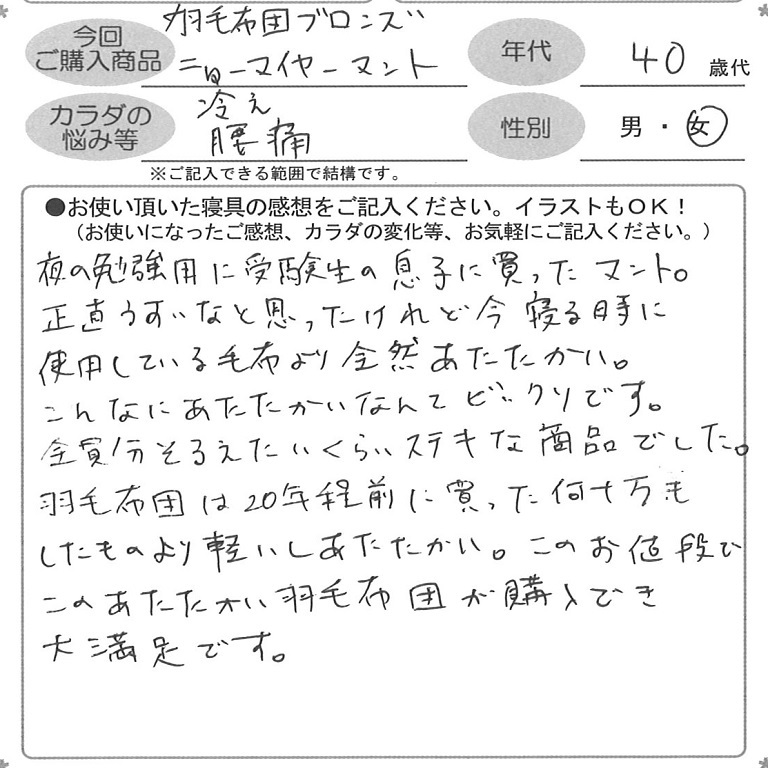 今回
ご購入商品
羽毛布団ブロンズ
ニューマイヤーマント
年代
40歳代
カラダの
悩み等
冷え
腰痛
性別
男・女
※ご記入できる範囲で結構です。
●お使い頂いた寝具の感想をご記入ください。イラストもOK！
（お使いになったご感想、カラダの変化等、お気軽にご記入ください。）
夜の勉強用に受験生の息子に買ったマント。
正直うすいなと思ったけれど今寝る時に
使用している毛布より全然あたたかい。
こんなにあたたかいなんてビックリです。
全員分そろえたいくらいステキな商品でした。
羽毛布団は20年程前に買った何十万も
したものより軽いしあたたかい。このお値段で
このあたたかい羽毛布団が購入でき
大満足です。